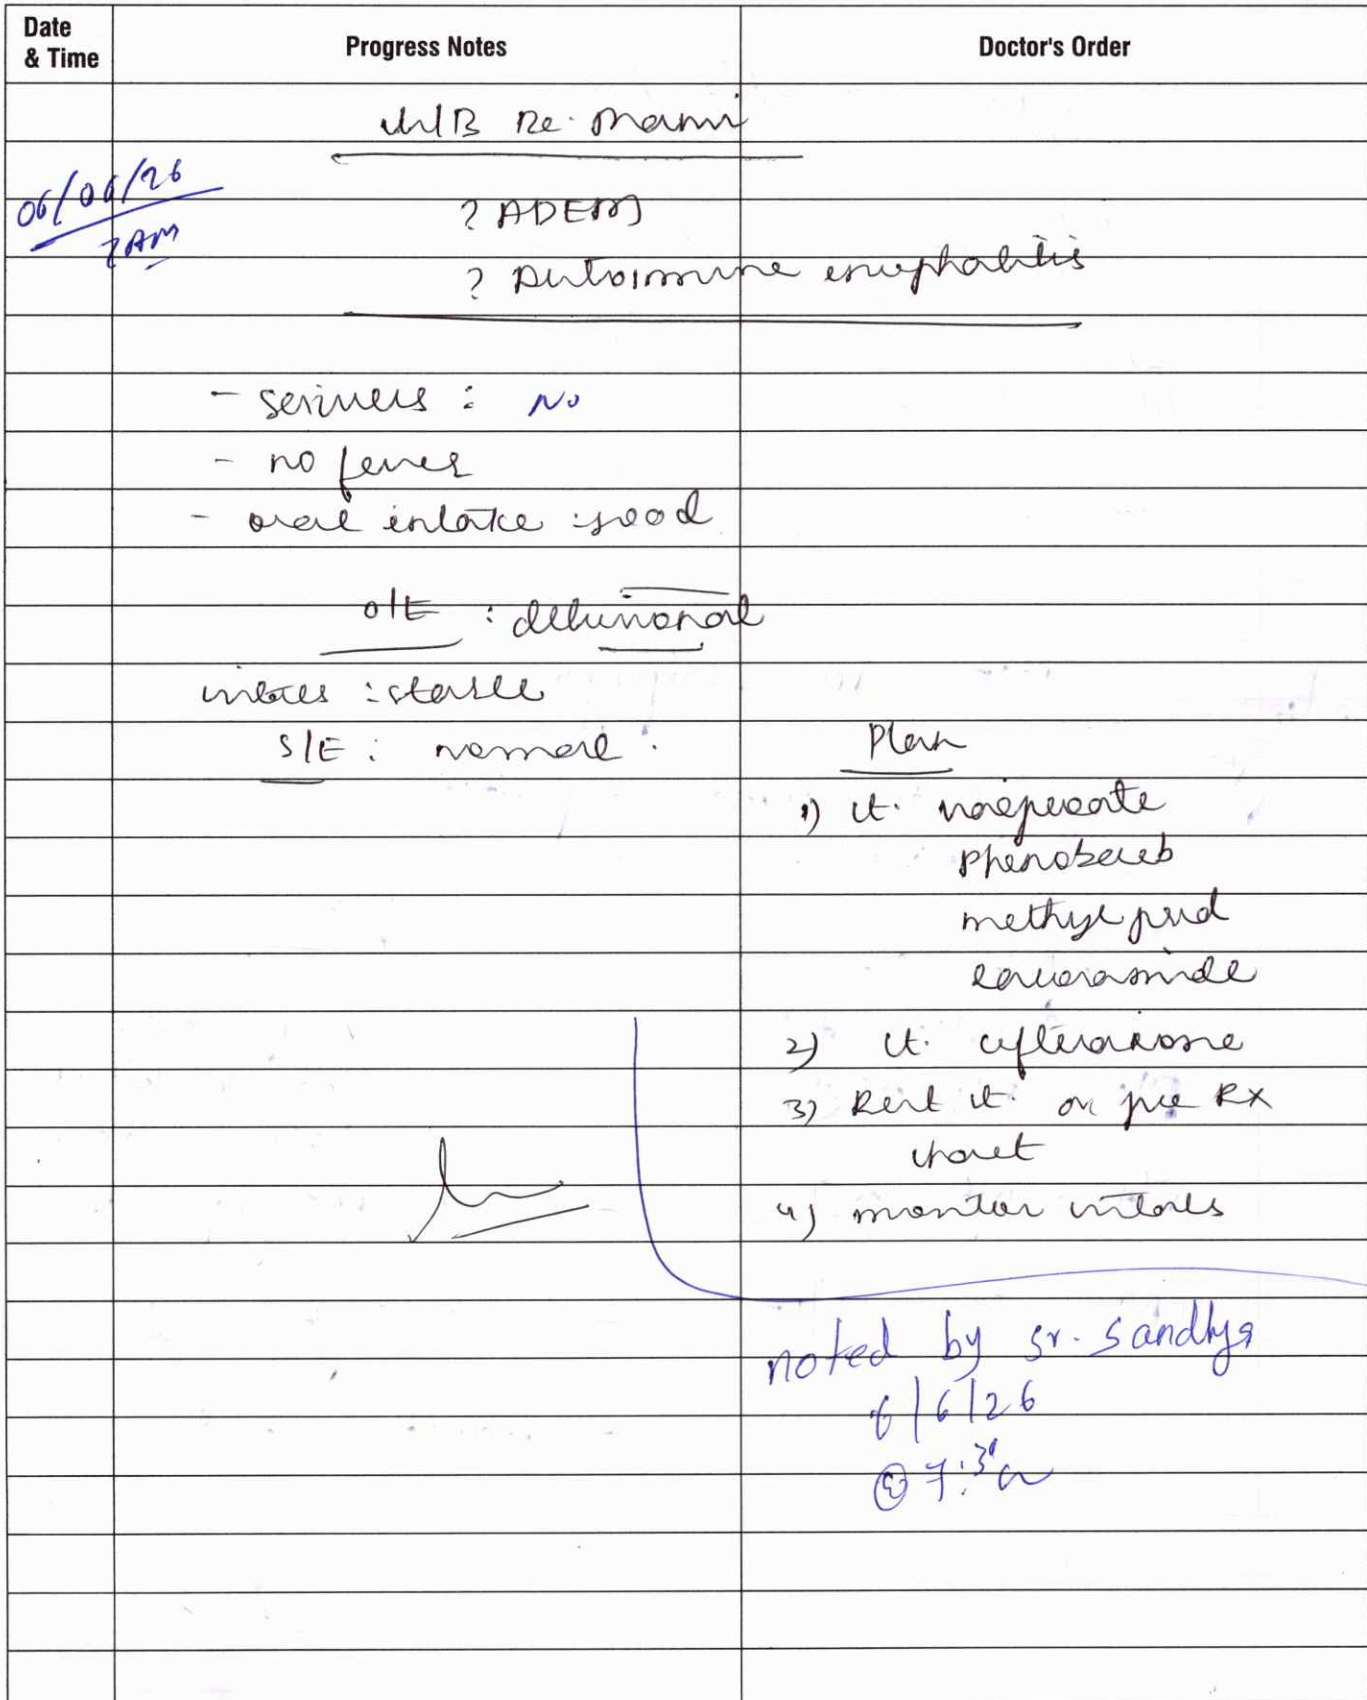 Date & Time
Progress Notes
Doctor's Order
S/B Dr.
06/06/26
7AM
? ADEM
? Autoimmune encephalitis
- seizures : No
- no fever
- oral intake : good
O/E :
vitals : stable
S/E : normal.
Plan
1) ct. valproate
phenobarb
methyl pred
lacosamide
2) ct. ceftriaxone
3) Rest ct. as per Rx
chart
4) monitor vitals
noted by sr. Sandhya
6/6/26
@ 7:30